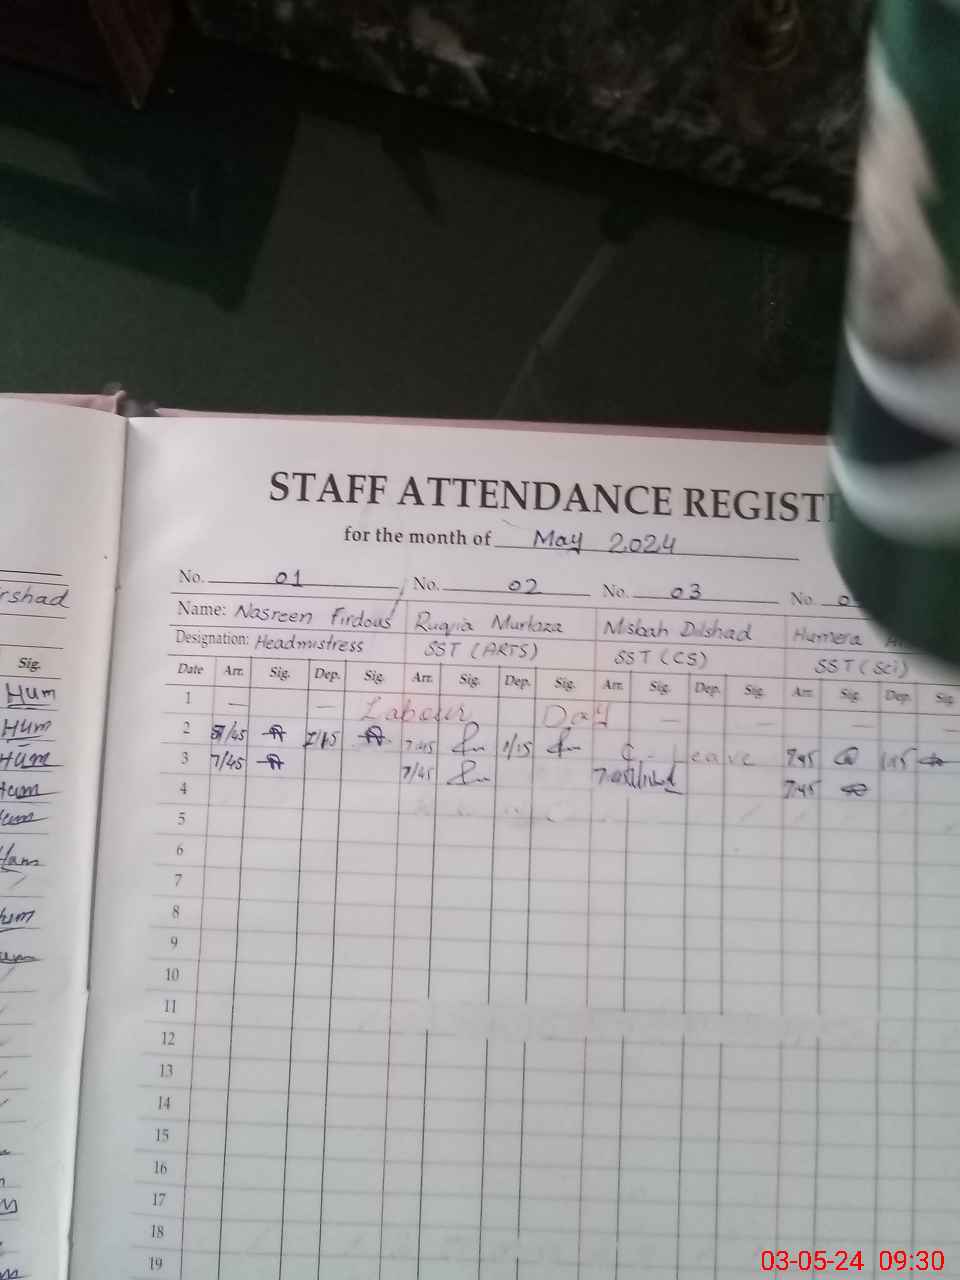 STAFF ATTENDANCE REGIST
for the month of May 2024
No. 01 No. 02 No. 03 No. 0
rshad
Name: Nasreen Firdous Ruqqia Murtaza Misbah Dilshad Humera
Designation: Headmistress SST (ARTS) SST (CS) SST (Sci)
Sig.
Date Arr. Sig. Dep. Sig. Arr. Sig. Dep. Sig. Arr. Sig. Dep. Sig. Arr. Sig. Dep. Sig
Hum
1 — — Labour Day — —
Hum
2 7/45 1/15 7:45 1/15 C-Leave 7:45 1:15
Hum
3 7/45 7/45 7:45
Hum
4
5
6
7
8
9
10
11
12
13
14
15
16
17
18
19
03-05-24 09:30